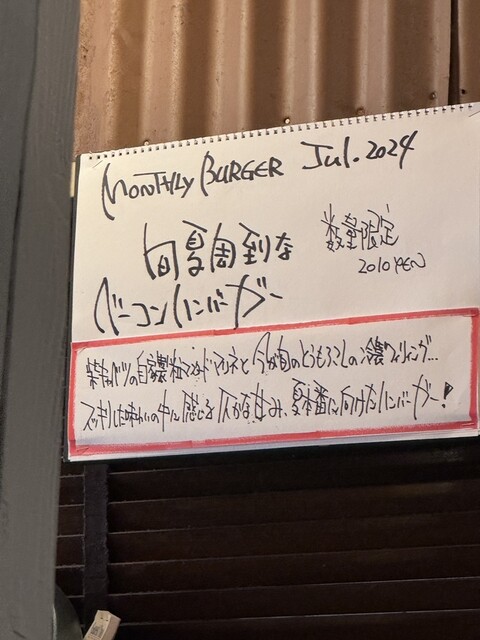 MONTHLY BURGER Jul. 2024
旬夏周到な
数量限定
2010 YEN
ベーコンハンバーガー
紫キャベツの自家製粒マスタードマリネと今が旬のとうもろこしの冷製
スッキリした味わいの中に感じる仄かな甘み、夏本番に向けたハンバーガー!